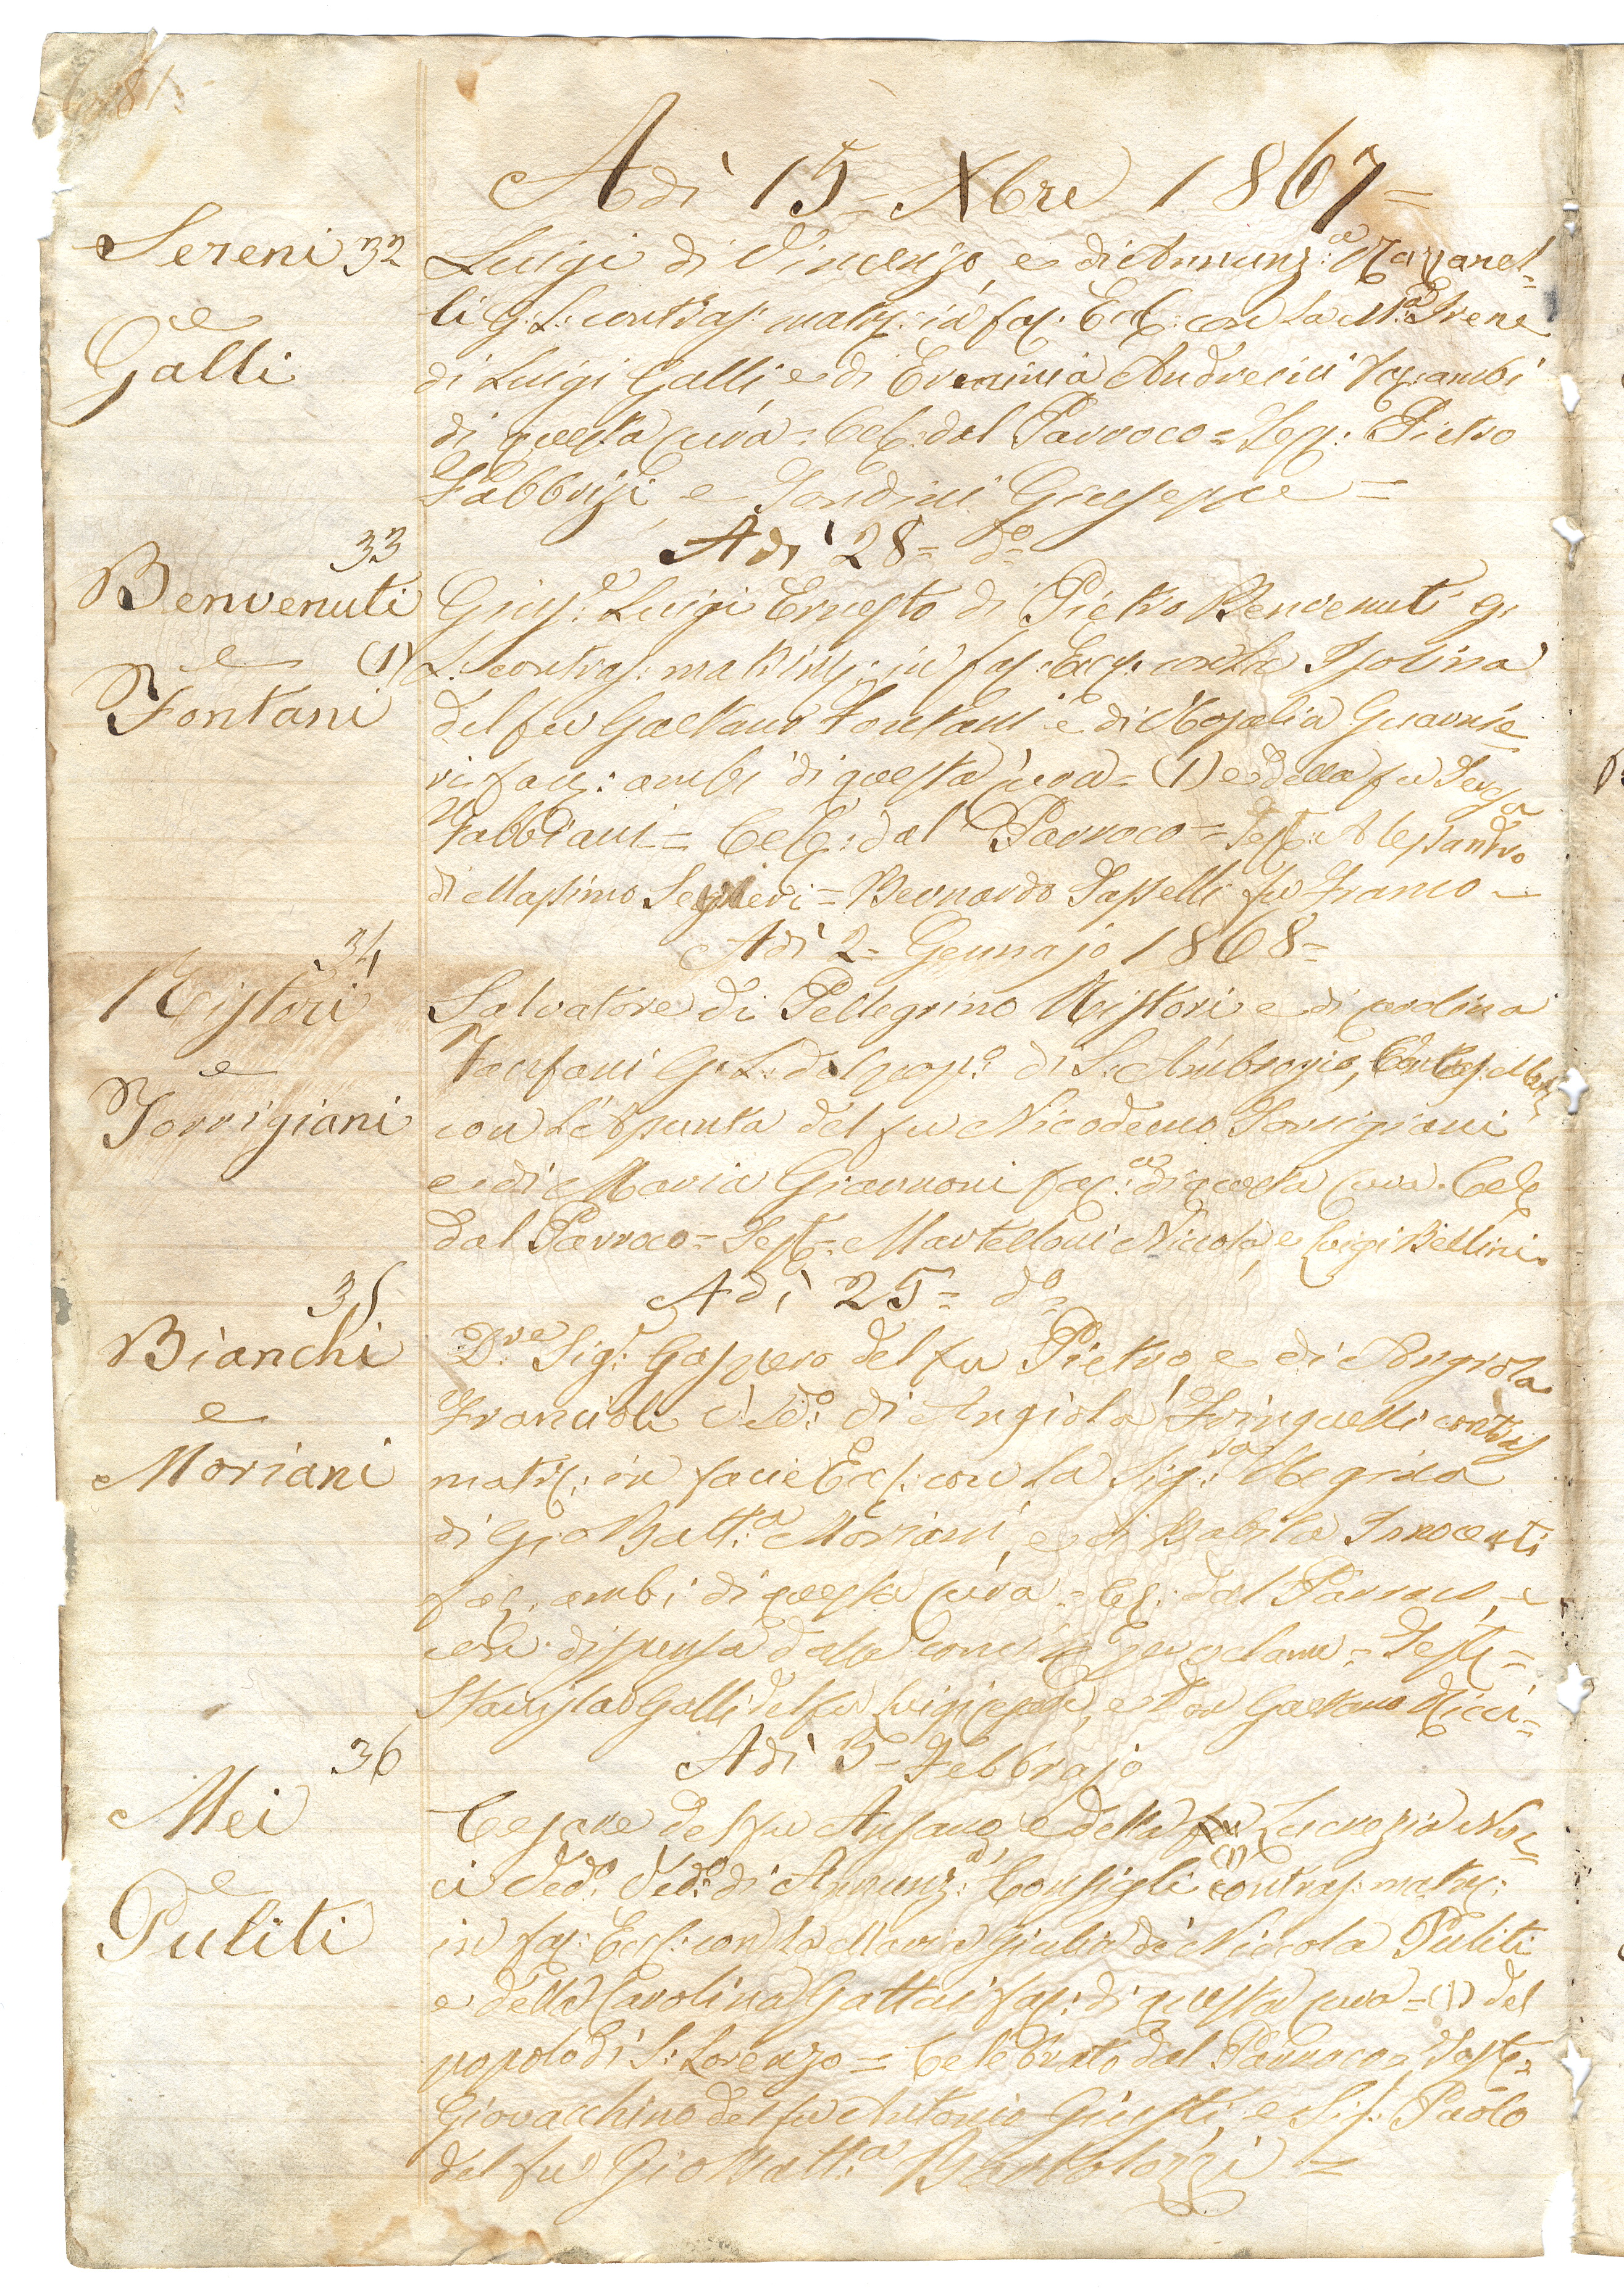 81.
Adì 15 = Xbre 1867 =
Sereni 32
e
Galli
Luigi di Vincenzo, e di Annunz:a
li G: L: contras: matr: in fac: Eccl: con la M:a Irene
di Luigi Galli, e di Erminia Andreini ambi
di questa cura = Cel: dal Parroco = Test: Pietro
Fabbrizi, e Giuseppe =
Adì 28 = do =
33
Benvenuti
e
Fontani
Gius:e Luigi Ernesto di Pietro Benvenuti G:
(1) L: contras: matrim: in fac: Eccl: con la Isolina
del fu Gaetano Fontani e di Rosalia Guarnie
ri fac: ambi di questa cura = (1) e della fu Teresa
Fabbiani = Cele: dal Parroco = Test: Alessandro
di Massimo = Bernardo Tasselli fu Franco =
Adì 2 = Gennajo 1868 =
34
Ristori
e
Torrigiani
Salvatore di Pellegrino Ristori e di Carolina
Fanfani G: L: del pop:o di S: Ambrogio, Contras: Matr:
con L'Assunta del fu Nicodemo Torrigiani
e di Maria Giannoni fac: di questa cura. Cele
dal Parroco = Test: = Martelloni Niccola, e Luigi Bellini =
Adì 25 = do =
35
Bianchi
e
Moriani
D:re Sig:r Gaspero del fu Pietro, e di Angiola
Francioli Ved:o di Angiola Fringuelli contras
matr: in facie Eccl: con la Sig:ra Regina
di Gio Batt:a Moriani, e di Babila Innocenti
fac: ambi di questa cura = Cel: dal Parroco, e
con dispensa dalle = Test: =
Stanislao Galli del fu Luigi e Don Gaetano Ricci =
Adì 5 = Febbrajo
36
Mei
e
Puliti
Cesare del fu Ansano e della fu Lucrezia Nuc
ci Ved:o di Annunz:a Consigli (1) contras: matr:
in fac: Eccl: con la Maria Giulia di Niccola Puliti
e della Carolina Gattai fac: di questa cura = (1) del
popolo di S: Lorenzo = Celebrato dal Parroco = Test: =
Giovacchino del fu Antonio Giusti, e Sig: Paolo
del fu Gio Batt:a Bartolozzi =